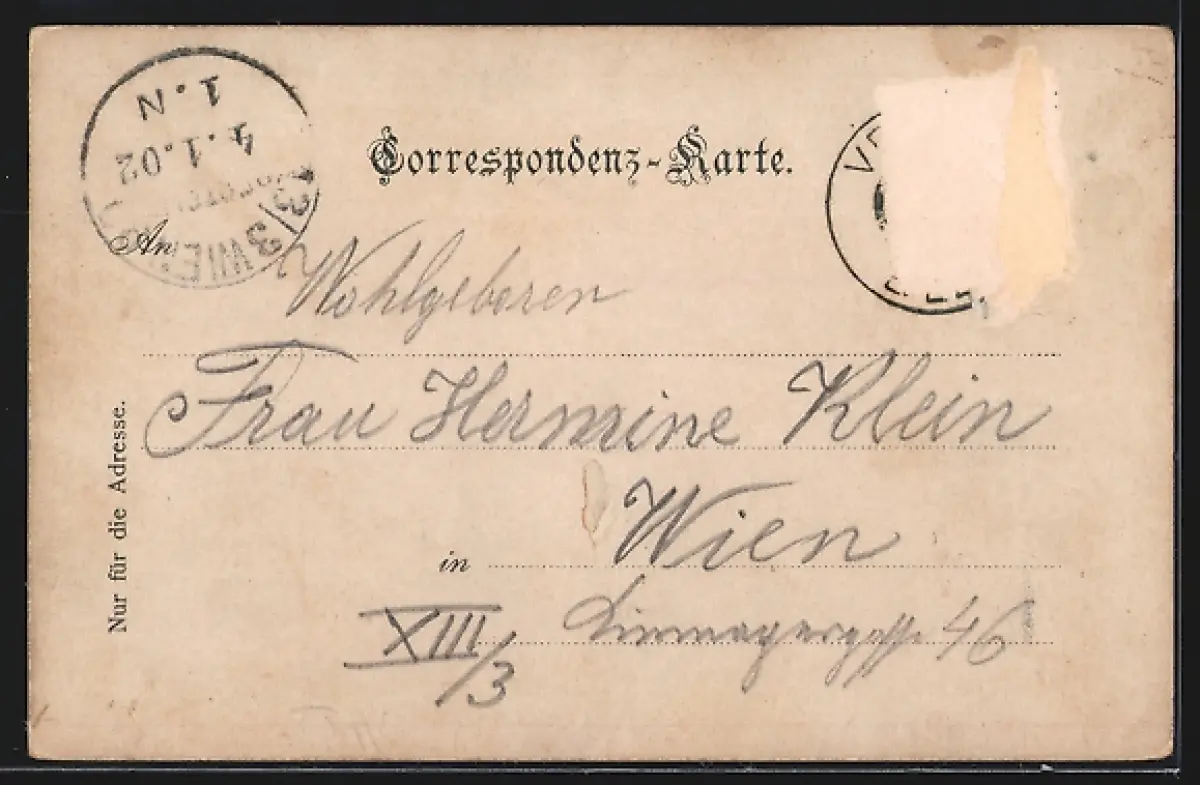 Correspondenz-Karte.
1. N
4.1.02
13/3 WIEN
An
Wohlgeboren
Frau Hermine Klein
in Wien
XIII/3 46
Nur für die Adresse.